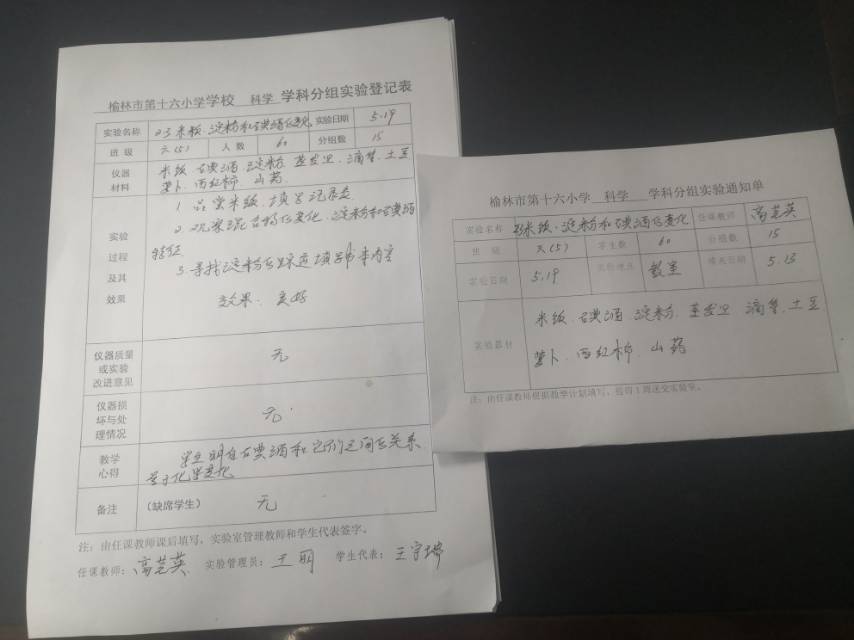 榆林市第十六小学学校 科学 学科分组实验登记表
实验名称 23米饭、淀粉和碘酒的变化 实验日期 5.19
班级 六(5) 人数 60 分组数 15
仪器材料 米饭、碘酒、淀粉、蒸发皿、滴管、土豆
萝卜、西红柿、山药
实验过程及其效果
1、品尝米饭、填写记录表
2、观察混合物的变化、淀粉和碘酒
特征
3、寻找淀粉的踪迹填写书本内容
效果:良好
仪器质量或实验改进意见 无
仪器损坏与处理情况 无
教学心得 明白碘酒和它们之间的关系
变化
备注 (缺席学生) 无
注:由任课教师课后填写,实验室管理教师和学生代表签字。
任课教师:高芸英 实验管理员:王明 学生代表:王宇
榆林市第十六小学 科学 学科分组实验通知单
实验名称 米饭、淀粉和碘酒的变化 任课教师 高芸英
班级 六(5) 学生数 60 分组数 15
实验日期 5.19 实验地点 教室 填表日期 5.13
实验器材 米饭、碘酒、淀粉、蒸发皿、滴管、土豆
萝卜、西红柿、山药
注:由任课教师根据教学计划填写,提前1周送交实验室。